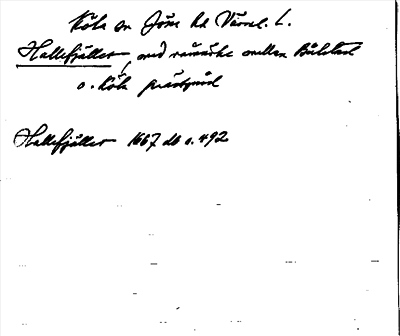 Köla sn Jösse hd Värml. l.
Hallefjället, vid råmärke mellan Bålstad
o. Köla prästgård
Hallefjället 1667 db s. 492